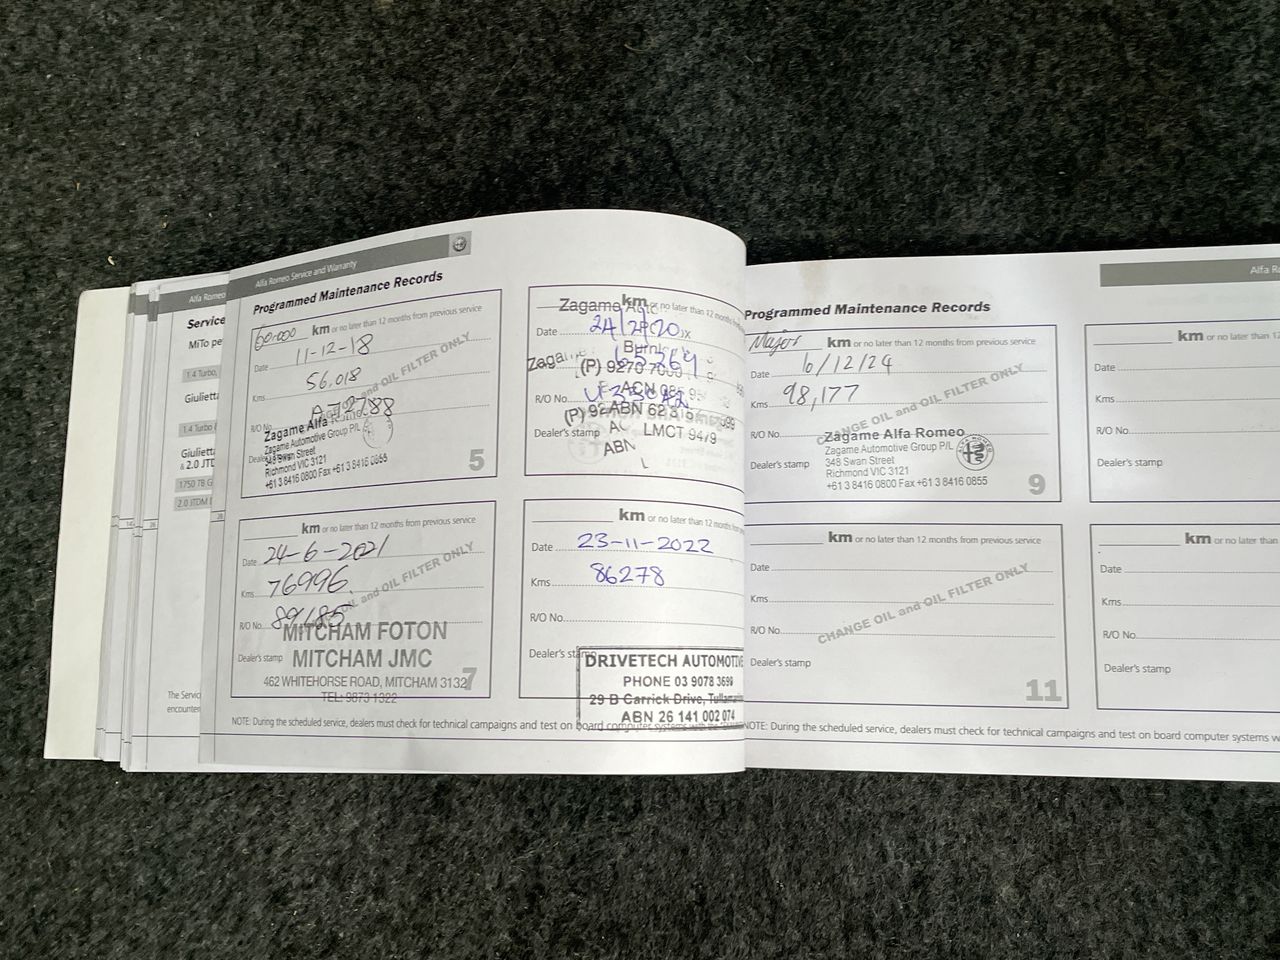 Alfa Romeo
Service
MiTo pe
1.4 Turbo,
Giulietta
1.4 Turbo (
Giulietta
& 2.0 JTD
1750 TB G
2.0 JTDM
The Servic
encounter
Alfa Romeo Service and Warranty
Programmed Maintenance Records
60.000 km or no later than 12 months from previous service
Date 11-12-18
Kms 56,018
R/O No. A72788
CHANGE OIL and OIL FILTER ONLY
Zagame Alfa Romeo
Zagame Automotive Group P/L
Dealer's stamp 348 Swan Street
Richmond VIC 3121
+61 3 8416 0800 Fax +61 3 8416 0855
5
km or no later than 12 months
Zagame
Date
Zagame
(P) 9270 7000
R/O No.
ACN
(P) 92 ABN 62
Dealer's stamp
LMCT 9479
ABN
km or no later than 12 months from previous service
Date 24-6-2021
Kms 76996.
R/O No. 89185
CHANGE OIL and OIL FILTER ONLY
MITCHAM FOTON
Dealer's stamp MITCHAM JMC
462 WHITEHORSE ROAD, MITCHAM 3132
TEL: 9873 1322
7
km or no later than 12 months from
Date 23-11-2022
Kms 86278
R/O No.
Dealer's stamp
DRIVETECH AUTOMOTIVE
PHONE 03 9078 3699
29 B Garrick Drive, Tullamarine
ABN 26 141 002 074
NOTE: During the scheduled service, dealers must check for technical campaigns and test on board computer systems with the
Programmed Maintenance Records
Major km or no later than 12 months from previous service
Date 6/12/24
Kms 98,177
R/O No.
CHANGE OIL and OIL FILTER ONLY
Zagame Alfa Romeo
Zagame Automotive Group P/L
Dealer's stamp 348 Swan Street
Richmond VIC 3121
+61 3 8416 0800 Fax +61 3 8416 0855
9
km or no later than 12 months from previous service
Date
Kms
R/O No.
CHANGE OIL and OIL FILTER ONLY
Dealer's stamp
11
NOTE: During the scheduled service, dealers must check for technical campaigns and test on board computer systems w
Alfa R
km or no later than 12
Date
Kms
R/O No.
Dealer's stamp
km or no later than 12
Date
Kms
R/O No.
Dealer's stamp